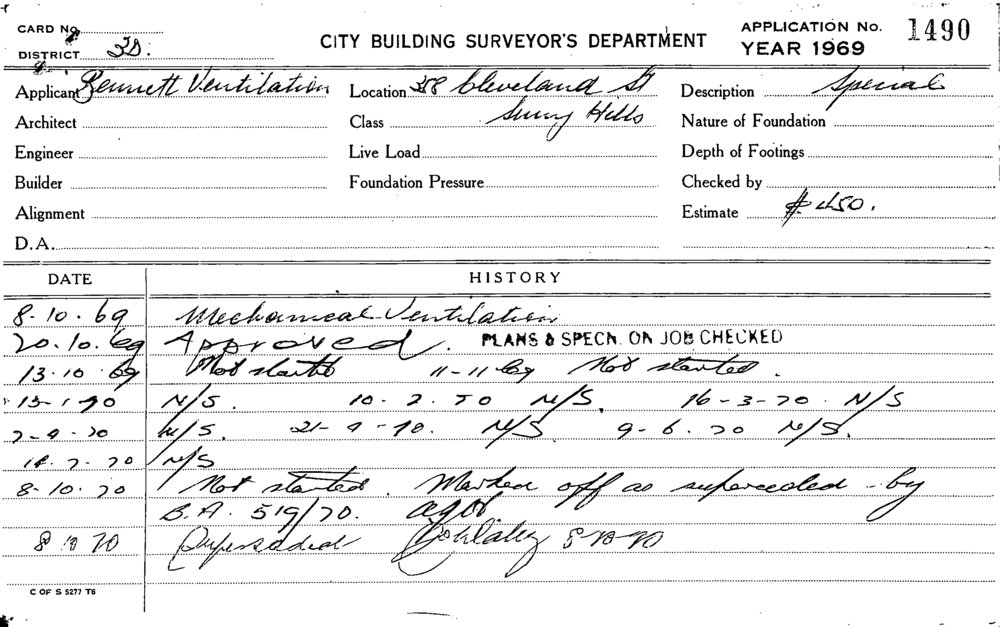 CARD No.
DISTRICT 3D.
CITY BUILDING SURVEYOR'S DEPARTMENT
APPLICATION No. 1490
YEAR 1969
Applicant Bennett Ventilation Location 358 Cleveland St Description Special
Architect Class Surry Hills Nature of Foundation
Engineer Live Load Depth of Footings
Builder Foundation Pressure Checked by
Alignment Estimate $450.
D.A.
DATE HISTORY
8-10-69 Mechanical Ventilation
20.10.69 Approved. PLANS & SPECN. ON JOB CHECKED
13-10-69 Not started 11-11-69 Not started.
15-1-70 N/S. 10-2-70 N/S. 16-3-70. N/S
7-9-70 N/S. 21-9-70. N/S 9-6.70 N/S.
14.7.70 N/S
8-10.70 Not started. Marked off as superceded by
B.A. 519/70.
8 10 70 Superseded 8-10-70
C OF S 5277 T6